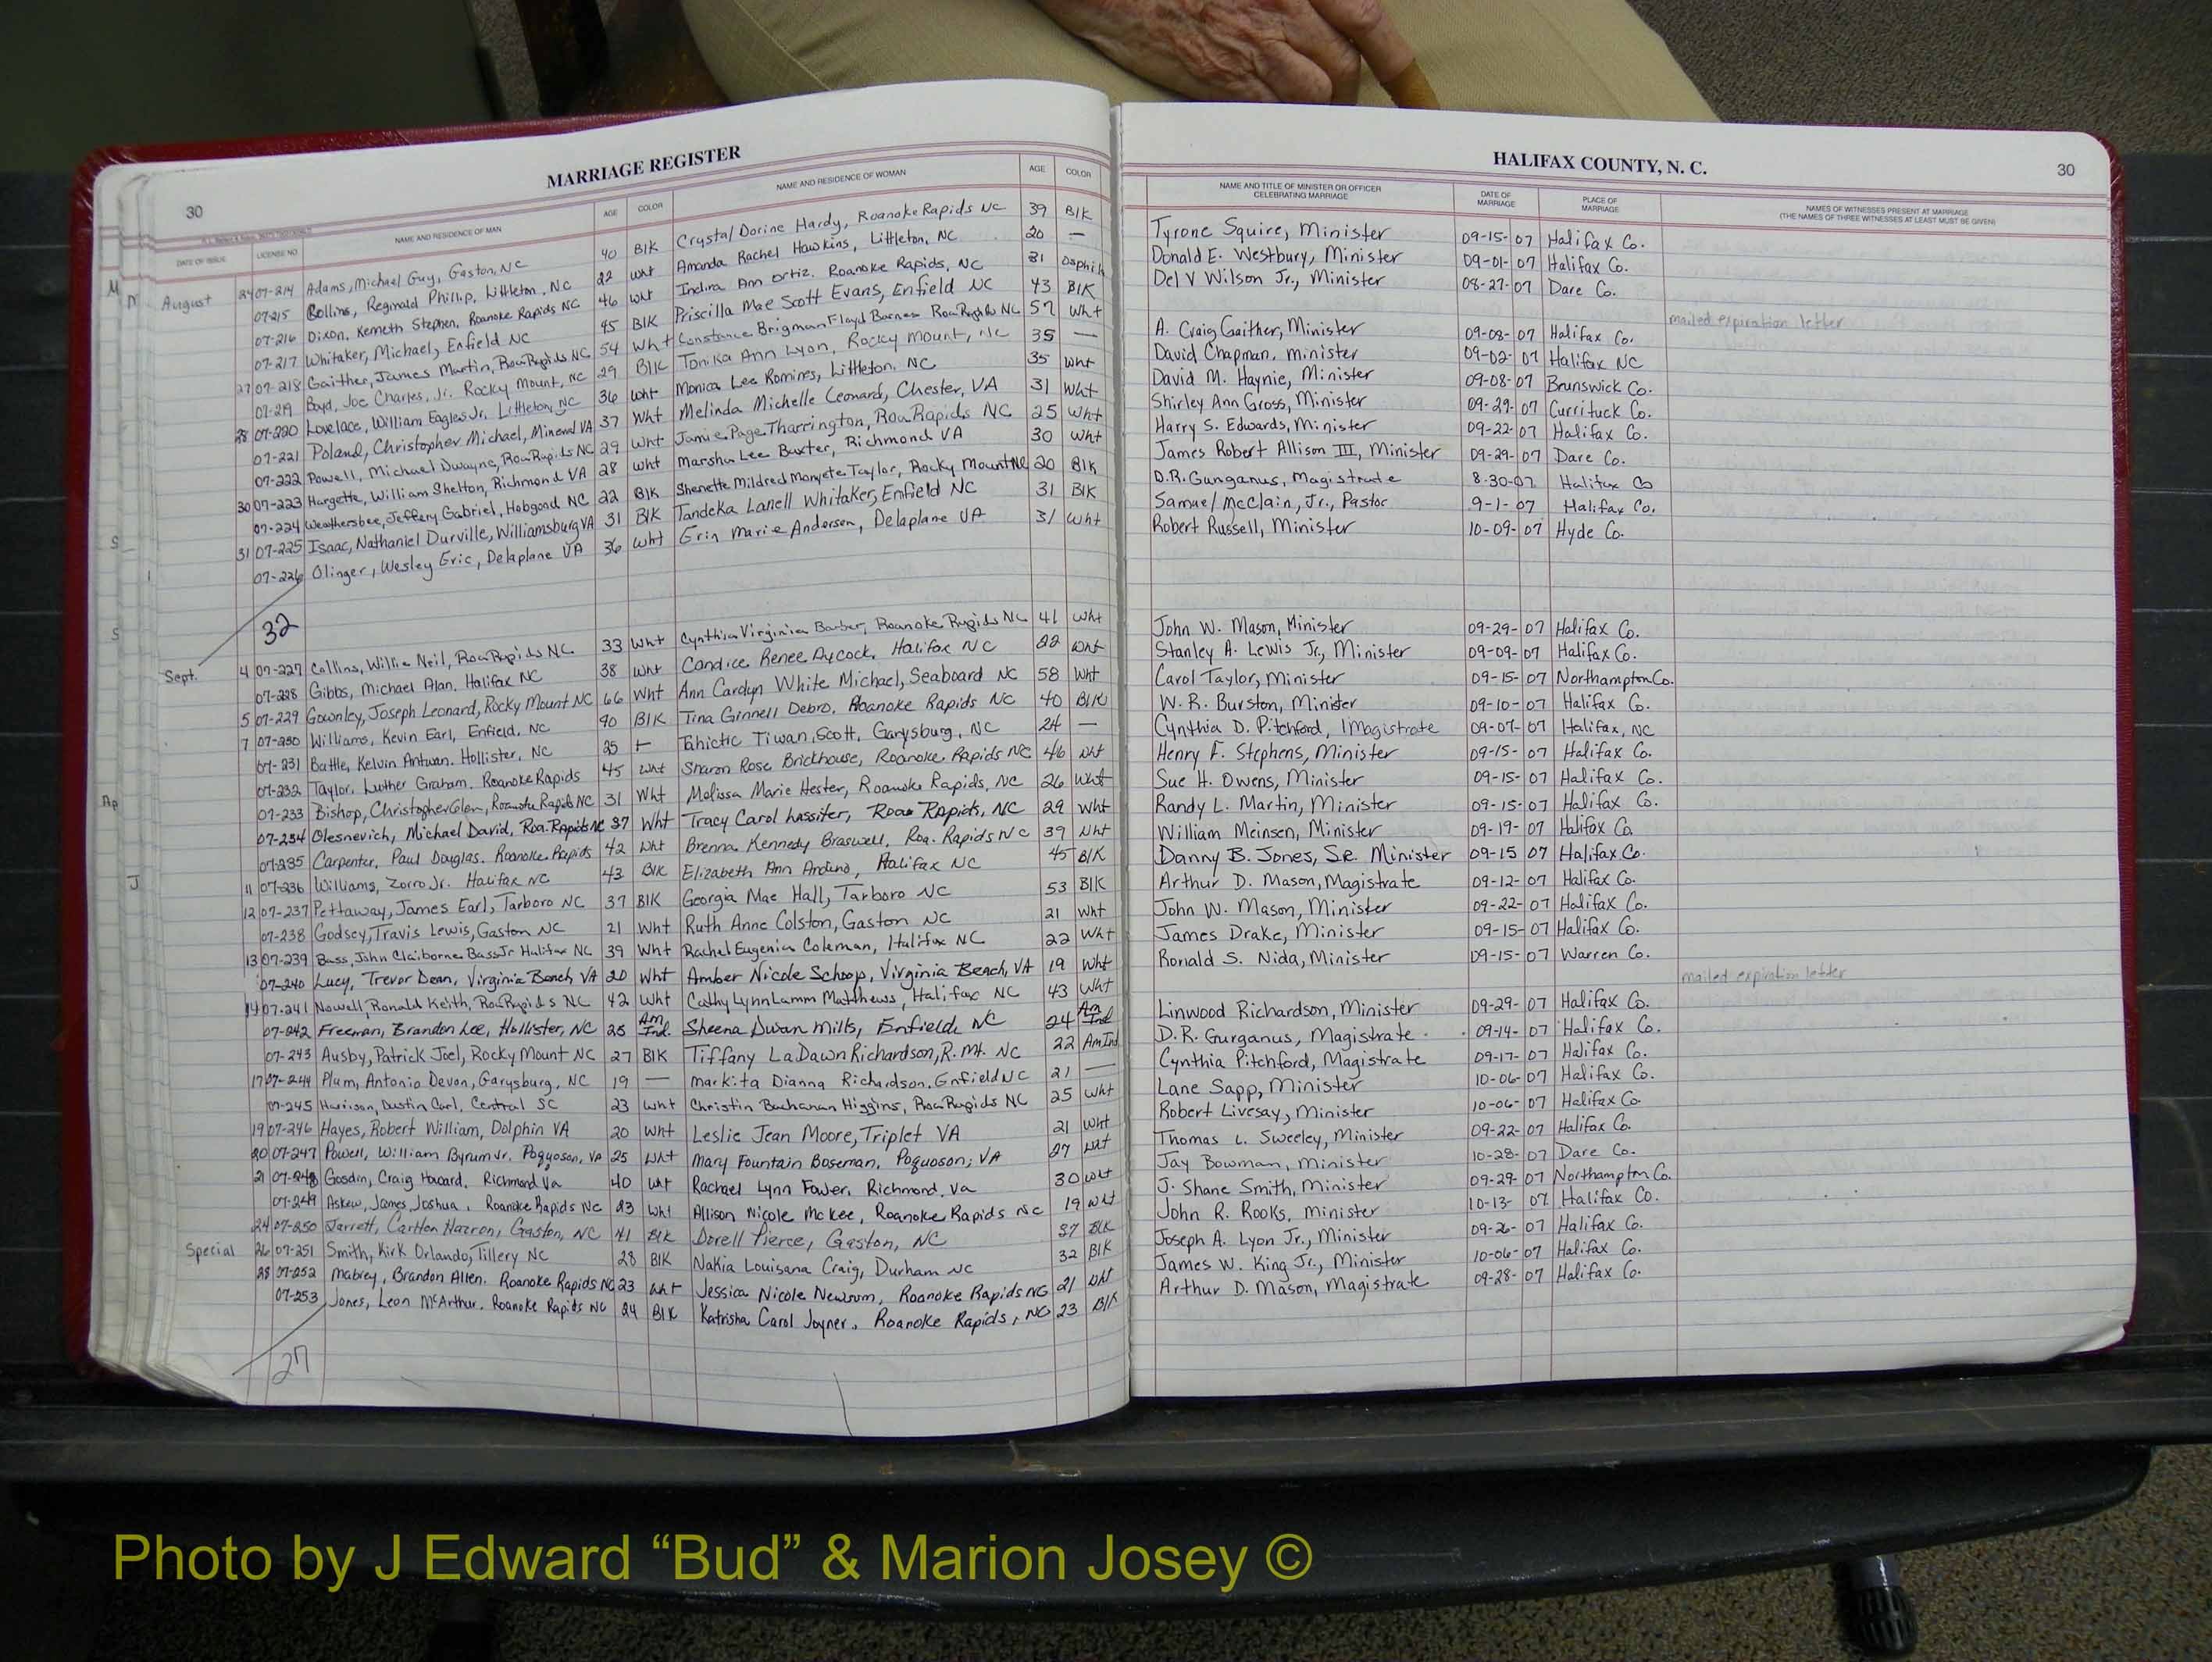 MARRIAGE REGISTER
30
DATE OF ISSUE LICENSE NO NAME AND RESIDENCE OF MAN AGE COLOR NAME AND RESIDENCE OF WOMAN AGE COLOR
August 24 07-214 Adams, Michael Guy, Gaston, NC 40 Blk Crystal Dorine Hardy, Roanoke Rapids NC 39 Blk
07-215 Collins, Reginald Phillip, Littleton, NC 22 wht Amanda Rachel Hawkins, Littleton, NC 20 —
07-216 Dixon, Kenneth Stephen, Roanoke Rapids NC 46 wht Indira Ann Ortiz, Roanoke Rapids, NC 31
07-217 Whitaker, Michael, Enfield NC 45 Blk Priscilla Mae Scott Evans, Enfield NC 43 Blk
27 07-218 Gaither, James Martin, Roa Rapids NC 54 Wht Constance Brigman Floyd Barnes Roa Rapids NC 57 Wht
07-219 Boyd, Joe Charles, Jr. Rocky Mount, NC 29 Blk Tonika Ann Lyon, Rocky Mount, NC 35 —
28 07-220 Lovelace, William Eagles Jr, Littleton, NC 36 wht Monica Lee Romines, Littleton, NC 35 wht
07-221 Poland, Christopher Michael, Mineral VA 37 Wht Melinda Michelle Leonard, Chester, VA 31 Wht
07-222 Powell, Michael Dwayne, Roa Rapids NC 29 Wht Jamie Page Tharrington, Roa Rapids NC 25 Wht
30 07-223 Hargette, William Shelton, Richmond VA 28 wht Marsha Lee Baxter, Richmond VA 30 Wht
07-224 Weathersbee, Jeffery Gabriel, Hobgood NC 22 Blk Shenette Mildred Taylor, Rocky Mount NC 20 Blk
31 07-225 Isaac, Nathaniel Durville, Williamsburg VA 31 Blk Tandeka Lanell Whitaker, Enfield NC 31 Blk
07-226 Olinger, Wesley Eric, Delaplane VA 36 wht Erin Marie Anderson, Delaplane VA 31 Wht
32
Sept. 4 07-227 Collins, Willie Neil, Roa Rapids NC 33 Wht Cynthia Virginia Barber, Roanoke Rapids NC 41 Wht
07-228 Gibbs, Michael Alan, Halifax NC 38 Wht Candice Renee Aycock, Halifax NC 22 Wht
5 07-229 Gownley, Joseph Leonard, Rocky Mount NC 66 Wht Ann Carolyn White Michael, Seaboard NC 58 Wht
7 07-230 Williams, Kevin Earl, Enfield, NC 40 Blk Tina Ginnell Debro, Roanoke Rapids NC 40 Blk
07-231 Battle, Kelvin Antwan, Hollister, NC 25 — Tiwan Scott, Garysburg, NC 24 —
07-232 Taylor, Luther Graham, Roanoke Rapids 45 Wht Sharon Rose Brickhouse, Roanoke Rapids NC 46 Wht
07-233 Bishop, Christopher Glen, Roanoke Rapids NC 31 Wht Melissa Marie Hester, Roanoke Rapids, NC 26 Wht
07-234 Olesnevich, Michael David, Roa. Rapids NC 37 Wht Tracy Carol Lassiter, Roa Rapids, NC 29 Wht
07-235 Carpenter, Paul Douglas, Roanoke Rapids 42 Wht Brenna Kennedy Braswell, Roa. Rapids NC 39 Wht
11 07-236 Williams, Zorro Jr. Halifax NC 43 Blk Elizabeth Ann Halifax NC 45 Blk
12 07-237 Pettaway, James Earl, Tarboro NC 37 Blk Georgia Mae Hall, Tarboro NC 53 Blk
07-238 Godsey, Travis Lewis, Gaston NC 21 Wht Ruth Anne Colston, Gaston NC 21 Wht
13 07-239 Bass, John Claiborne Bass Jr Halifax NC 39 Wht Rachel Eugenia Coleman, Halifax NC 22 Wht
07-240 Lucy, Trevor Dean, Virginia Beach VA 20 Wht Amber Nicole Schoop, Virginia Beach, VA 19 Wht
14 07-241 Nowell, Ronald Keith, Roa Rapids NC 42 Wht Cathy Lynn Lamm Matthews, Halifax NC 43 Wht
07-242 Freeman, Brandon Lee, Hollister, NC 25 Am. Ind. Sheena Dwan Mills, Enfield NC 24 Am Ind
07-243 Ausby, Patrick Joel, Rocky Mount NC 27 Blk Tiffany LaDawn Richardson, R. Mt. NC 22 Am Ind
17 07-244 Plum, Antonio Devon, Garysburg, NC 19 — Markita Dianna Richardson, Enfield NC 21 —
07-245 Harrison, Dustin Carl, Central SC 23 wht Christin Buchanan Higgins, Roa Rapids NC 25 wht
19 07-246 Hayes, Robert William, Dolphin VA 20 Wht Leslie Jean Moore, Triplet VA 21 Wht
20 07-247 Powell, William Byrum Jr. Poquoson, VA 25 Wht Mary Fountain Boseman, Poquoson, VA 27 Wht
21 07-248 Gosdin, Craig Howard, Richmond, Va 40 Wht Rachael Lynn Fower, Richmond, Va 30 Wht
07-249 Askew, James Joshua, Roanoke Rapids NC 23 Wht Allison Nicole McKee, Roanoke Rapids NC 19 Wht
24 07-250 Jarrett, Gaston, NC 41 Blk Dorell Pierce, Gaston, NC 37 Blk
Special 26 07-251 Smith, Kirk Orlando, Tillery NC 28 Blk Nakia Louisana Craig, Durham NC 32 Blk
28 07-252 Mabrey, Brandon Allen, Roanoke Rapids NC 23 Wht Jessica Nicole Newsom, Roanoke Rapids NC 21 Wht
07-253 Jones, Leon McArthur, Roanoke Rapids NC 24 Blk Katrisha Carol Joyner, Roanoke Rapids, NC 23 Blk
27
HALIFAX COUNTY, N. C.
30
NAME AND TITLE OF MINISTER OR OFFICER CELEBRATING MARRIAGE DATE OF MARRIAGE PLACE OF MARRIAGE NAMES OF WITNESSES PRESENT AT MARRIAGE
(THE NAMES OF THREE WITNESSES AT LEAST MUST BE GIVEN)
Tyrone Squire, Minister 09-15-07 Halifax Co.
Donald E. Westbury, Minister 09-01-07 Halifax Co.
Del V Wilson Jr., Minister 08-27-07 Dare Co.
mailed expiration letter
A. Craig Gaither, Minister 09-08-07 Halifax Co.
David Chapman, minister 09-02-07 Halifax NC
David M. Haynie, Minister 09-08-07 Brunswick Co.
Shirley Ann Gross, Minister 09-29-07 Currituck Co.
Harry S. Edwards, Minister 09-22-07 Halifax Co.
James Robert Allison III, Minister 09-29-07 Dare Co.
D.R. Gurganus, Magistrate 8-30-07 Halifax Co
Samuel McClain, Jr., Pastor 9-1-07 Halifax Co.
Robert Russell, Minister 10-09-07 Hyde Co.
John W. Mason, Minister 09-29-07 Halifax Co.
Stanley A. Lewis Jr., Minister 09-09-07 Halifax Co.
Carol Taylor, Minister 09-15-07 Northampton Co.
W. R. Burston, Minister 09-10-07 Halifax Co.
Cynthia D. Pitchford, Magistrate 09-07-07 Halifax, NC
Henry F. Stephens, Minister 09-15-07 Halifax Co.
Sue H. Owens, Minister 09-15-07 Halifax Co.
Randy L. Martin, Minister 09-15-07 Halifax Co.
William Meinsen, Minister 09-19-07 Halifax Co.
Danny B. Jones, Sr. Minister 09-15 07 Halifax Co.
Arthur D. Mason, Magistrate 09-12-07 Halifax Co.
John W. Mason, Minister 09-22-07 Halifax Co.
James Drake, Minister 09-15-07 Halifax Co.
Ronald S. Nida, Minister 09-15-07 Warren Co.
mailed expiration letter
Linwood Richardson, Minister 09-29-07 Halifax Co.
D. R. Gurganus, Magistrate 09-14-07 Halifax Co.
Cynthia Pitchford, Magistrate 09-17-07 Halifax Co.
Lane Sapp, Minister 10-06-07 Halifax Co.
Robert Livesay, Minister 10-06-07 Halifax Co.
Thomas L. Sweeley, Minister 09-22-07 Halifax Co.
Jay Bowman, Minister 10-28-07 Dare Co.
J. Shane Smith, Minister 09-29-07 Northampton Co.
John R. Rooks, Minister 10-13-07 Halifax Co.
Joseph A. Lyon Jr., Minister 09-26-07 Halifax Co.
James W. King Jr., Minister 10-06-07 Halifax Co.
Arthur D. Mason, Magistrate 09-28-07 Halifax Co.
Photo by J Edward “Bud” & Marion Josey ©